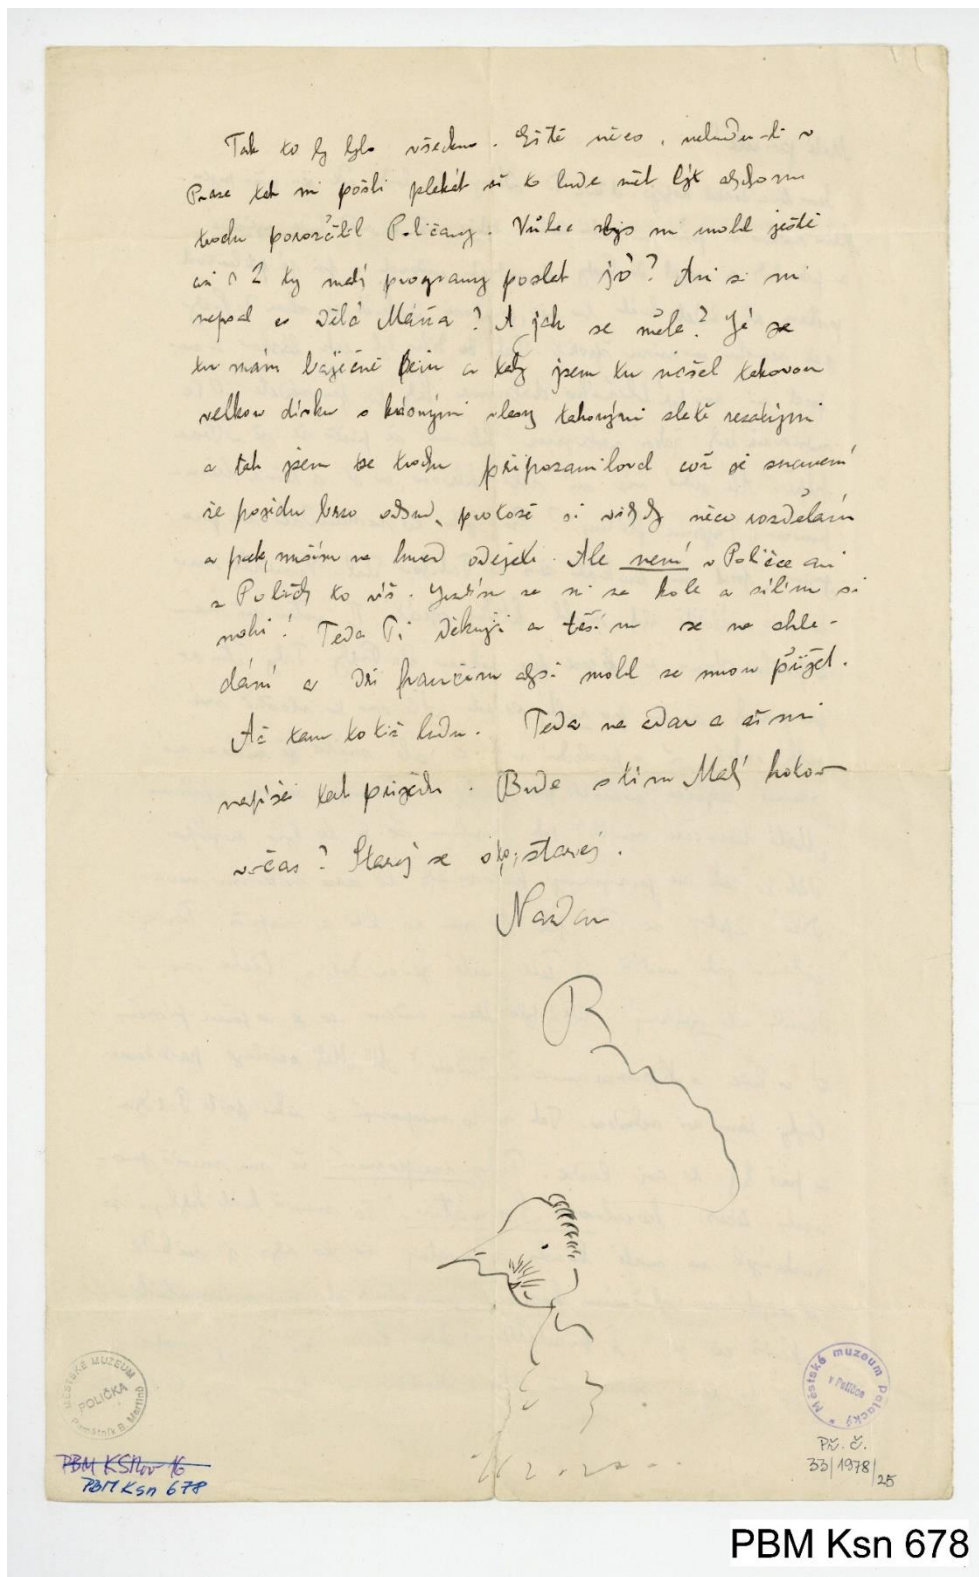 Tak to by bylo všechno. Eště něco, nebudu-li v
Praze tak mi pošli plakát ať to bude mět být abychom
trochu pozorčtil Poličany. Vůbec bys mi mohl ještě
asi 2 ty malý programy poslat jó? Ani si mi
nepsal co dělá Máňa? A jak se měla? Já se
tu mám báječně a taky jsem tu našel takovou
velkou dívku s krásnými vlasy takovými zlatě rezatými
a tak jsem se trochu připozamiloval což je znamení
že pojedu brzo odsud, protože si vždycky něco rozdělám
a pak musím na hned odejeti. Ale není v Poličce ani
z Poličky to víš. Jezdím na ni na kole a sílím si
nohi! Teda Ti děkuji a těším se na shle-
dání a Dři frančinu abysi mohl se mnou přijet.
Ač tam totiž budu. Teda na zdar a ať mi
napíšeš tak přijedu. Bude s tím Malý hotov
včas? Starej se o to, starej.
Nazdar
B
MĚSTSKÉ MUZEUM
POLIČKA
Památník B. Martinů
PBM KSKor 16
PBM Ksn 678
Městské muzeum Palacký
v Poličce
Př. č.
33/1978/25
PBM Ksn 678